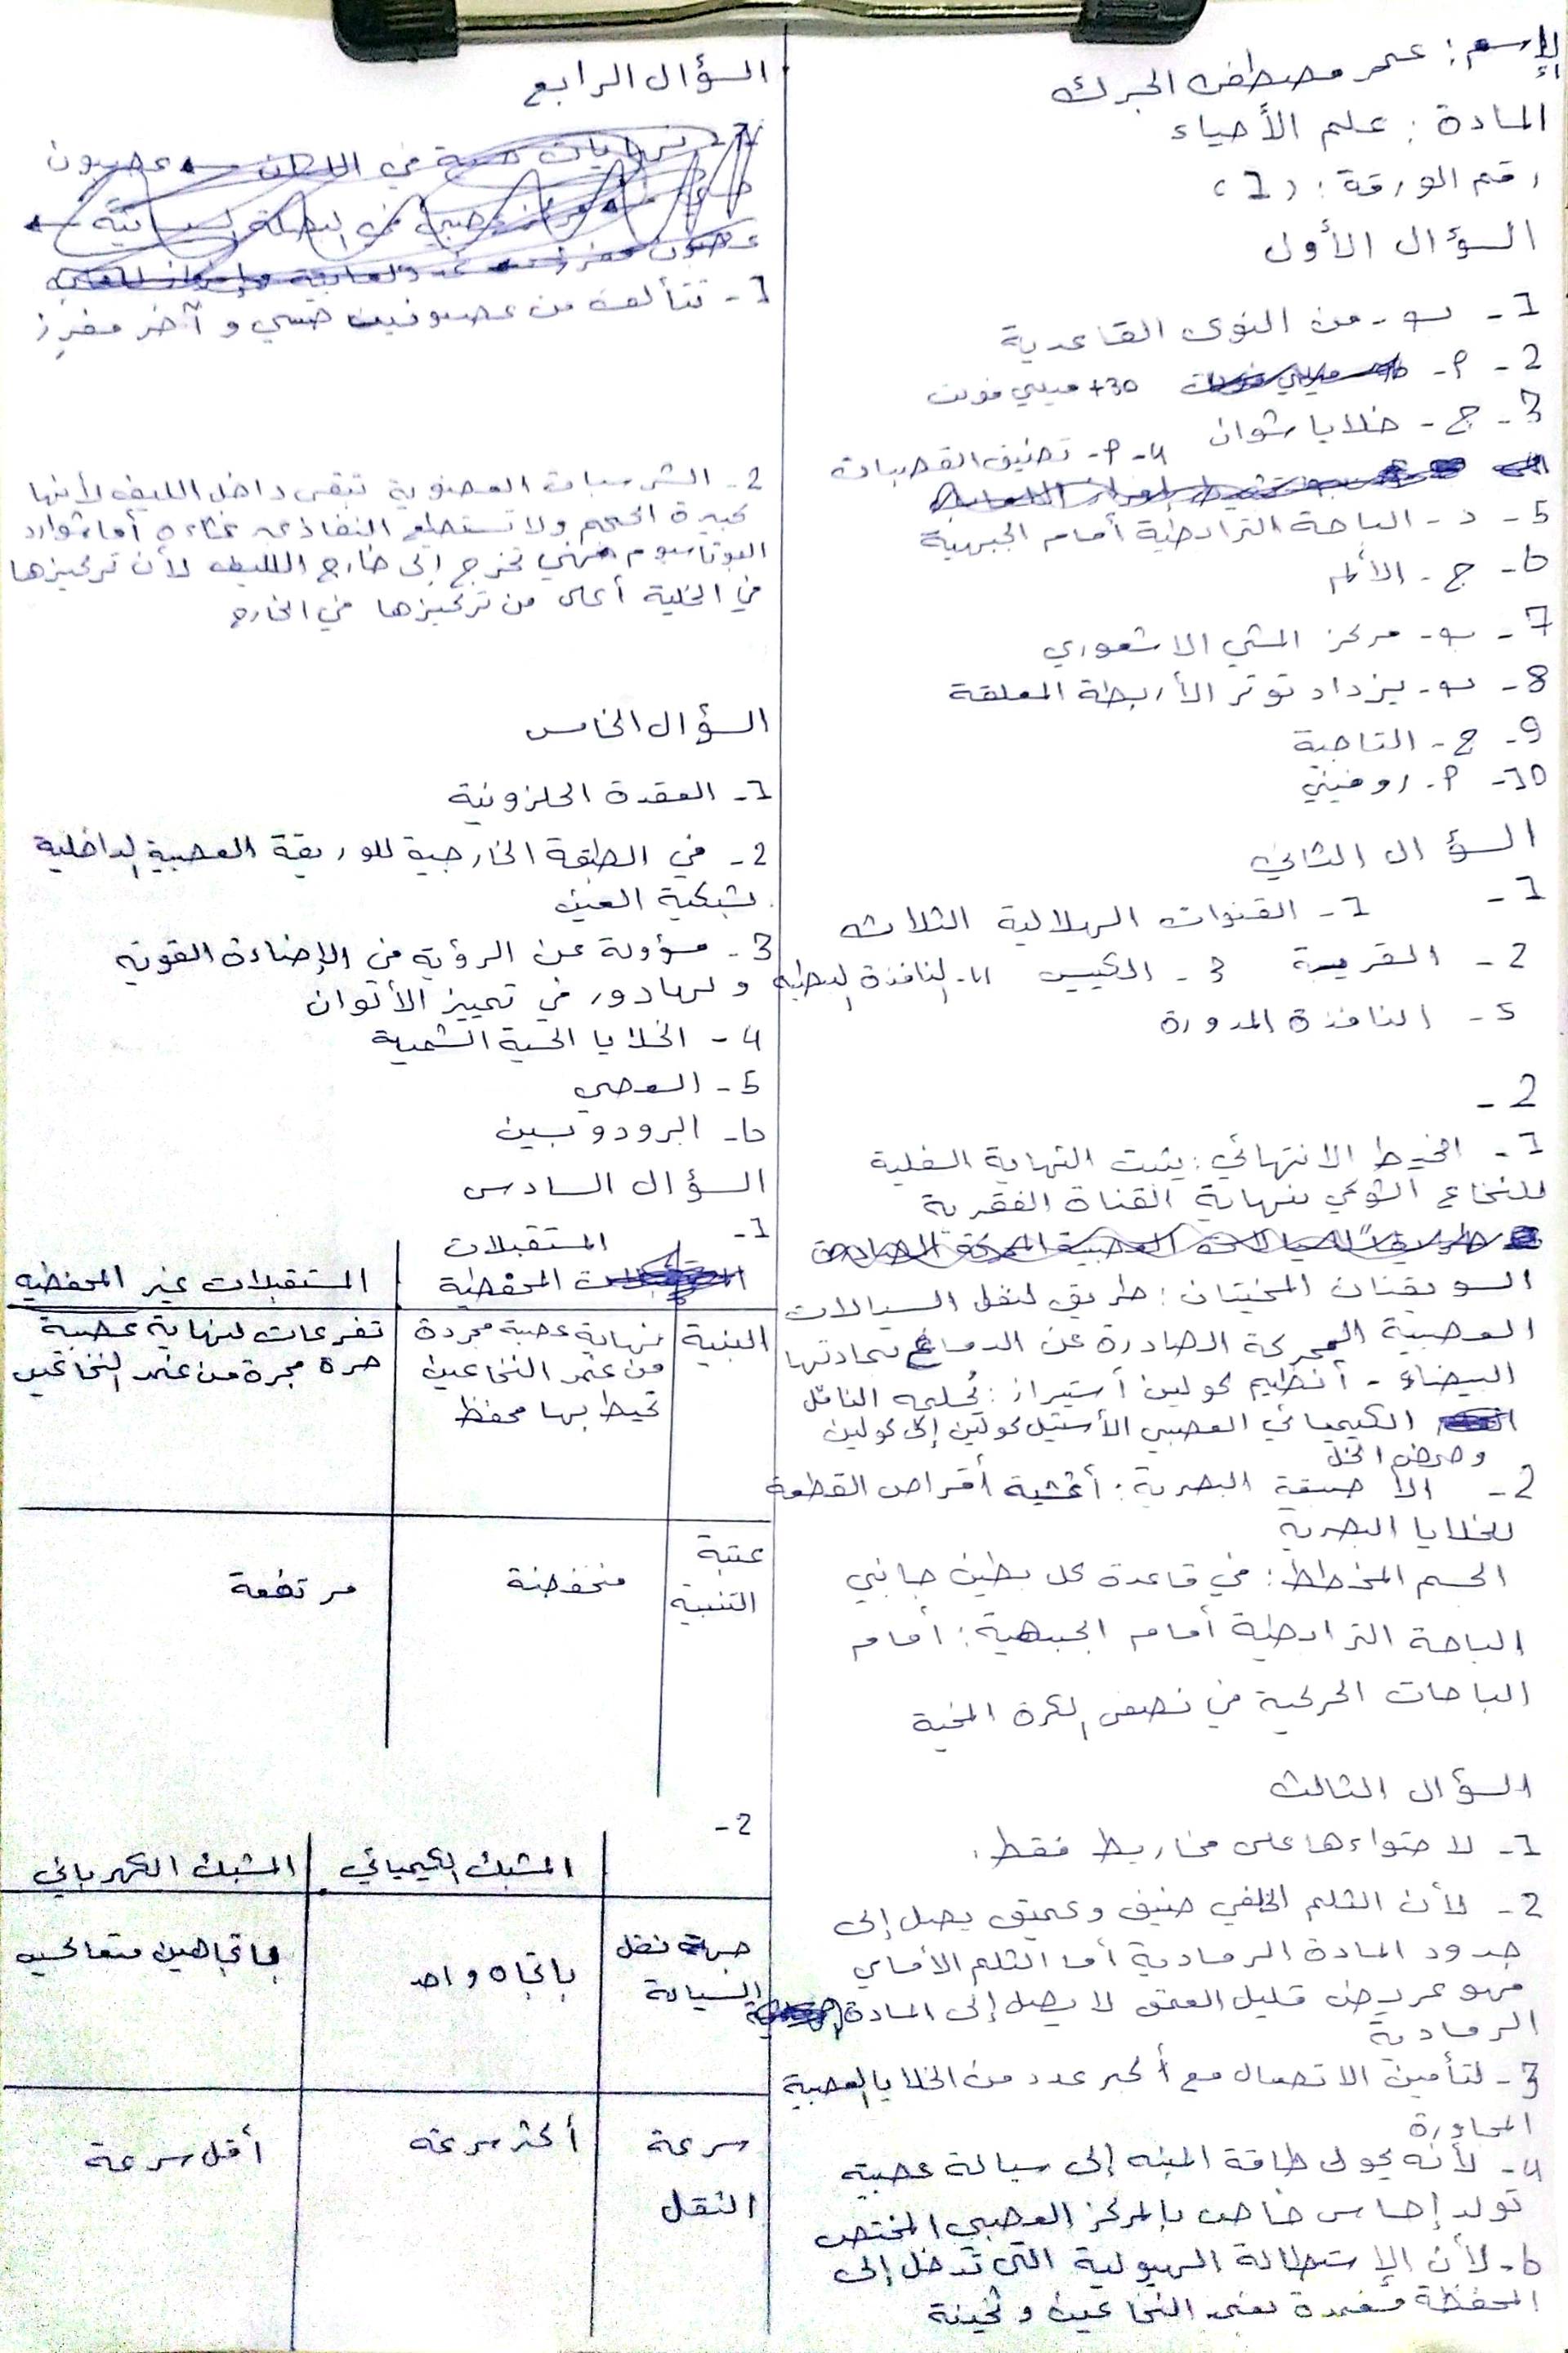 الإسم: عمر مصطفى الجرك
المادة: علم الأحياء
رقم الورقة: (1)
السؤال الأول
1- ب- من النوى القاعدية
2- أ- +30 ميلي فولت
3- ج- خلايا شوان 4- أ- تضيق القصبات
5- د- الباحة الترابطية أمام الجبهية
6- ج- الألم
7- ب- مركز المشي الاشعوري
8- ب- يزداد توتر الأربطة المعلقة
9- ج- التاجية
10- أ- روفيني
السؤال الثاني
1- 1- القنوات الهلالية الثلاثه
2- القريبة 3- الكييس 4- النافذة البيضية
5- النافذة المدورة
2-
1- الخيط الانتهائي: يثبت النهاية السفلية
للنخاع الشوكي بنهاية القناة الفقرية
السويقتان المخيتان: طريق لنقل السيالات
العصبية المحركة الصادرة عن الدماغ بمادتها
البيضاء - أنظيم كولين أستيراز: يُحلمه الناقل
الكيميائي العصبي الأستيل كولين إلى كولين
وحمض الخل
2- الأصبغة البصرية: أغشية أقراص القطعة
للخلايا البصرية
الجسم المخطط: في قاعدة كل بطين جانبي
الباحة الترابطية أمام الجبهية: أمام
الباحات الحركية في نصفي الكرة المخية
السؤال الثالث
1- لاحتواءها على مخاريط فقط.
2- لأن الثلم الخلفي ضيق وعميق يصل إلى
حدود المادة الرمادية أما الثلم الأمامي
فهو عريض قليل العمق لا يصل إلى المادة
الرمادية
3- لتأمين الاتصال مع أكبر عدد من الخلايا العصبية
المجاورة
4- لأنه يحول طاقة المنبه إلى سيالة عصبية
تولد إحساس خاص بالمركز العصبي المختص
6- لأن الإستطالة الهيولية التي تدخل إلى
المحفظة مغمدة بغمد النخاعين وثخينة
السؤال الرابع
1- تتألف من عصبونين حسي وآخر مفرز
2- الشرسبات العضوية تبقى داخل الليف لأنها
كبيرة الحجم ولا تستطيع النفاذ عبر غشاءه أما شوارد
البوتاسيوم فهي تخرج إلى خارج الليف لأن تركيزها
في الخلية أعلى من تركيزها في الخارج
السؤال الخامس
1- العقدة الحلزونية
2- في الطبقة الخارجية للوريقة العصبية الداخلية
لشبكية العين
3- مسؤولة عن الرؤية في الإضاءة القوية
ولها دور في تمييز الألوان
4- الخلايا الحسية الشمية
5- العصي
6- الرودوبسين
السؤال السادس
1- المستقبلات
المحفظية المستقبلات غير المحفظية
البنية
نهاية عصبية مجردة
من غمد النخاعين
تحيط بها محفظة
تفرعات لنهاية عصبية
حرة مجردة من غمد النخاعين
عتبة
التنبيه
منخفضة
مرتفعة
2-
المشبك الكيميائي المشبك الكهربائي
جهة نقل
السيالة
باتجاه واحد
باتجاهين متعاكسين
سرعة
النقل
أكثر سرعة
أقل سرعة